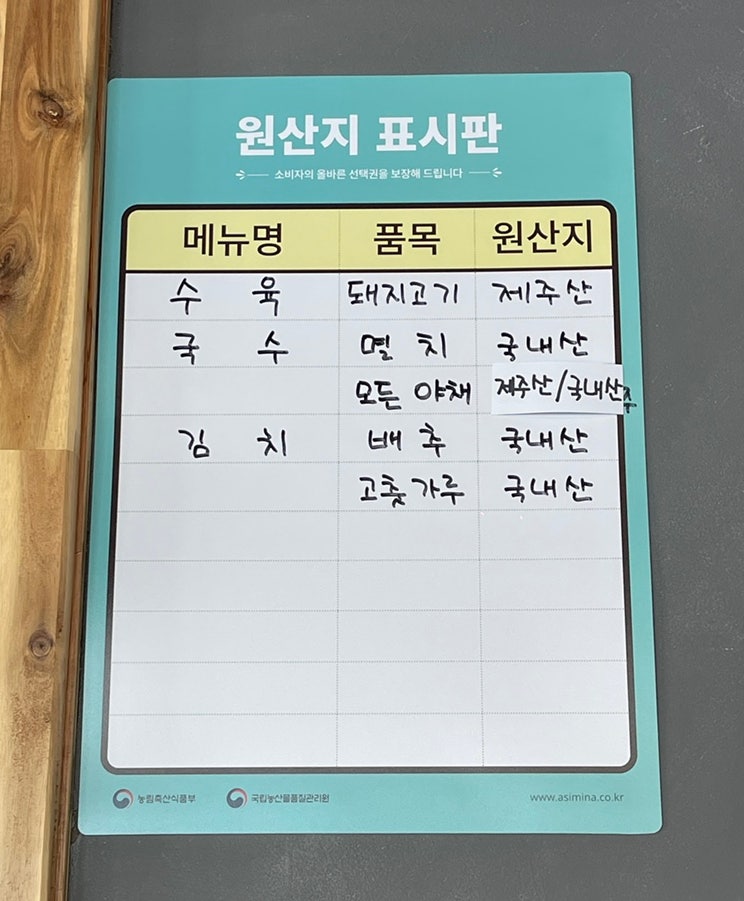 원산지 표시판
소비자의 올바른 선택권을 보장해 드립니다
메뉴명 품목 원산지
수 육 돼지고기 제주산
국 수 멸 치 국내산
모든 야채 제주산/국내산
김 치 배 추 국내산
고춧가루 국내산
농림축산식품부 국립농산물품질관리원 www.asimina.co.kr